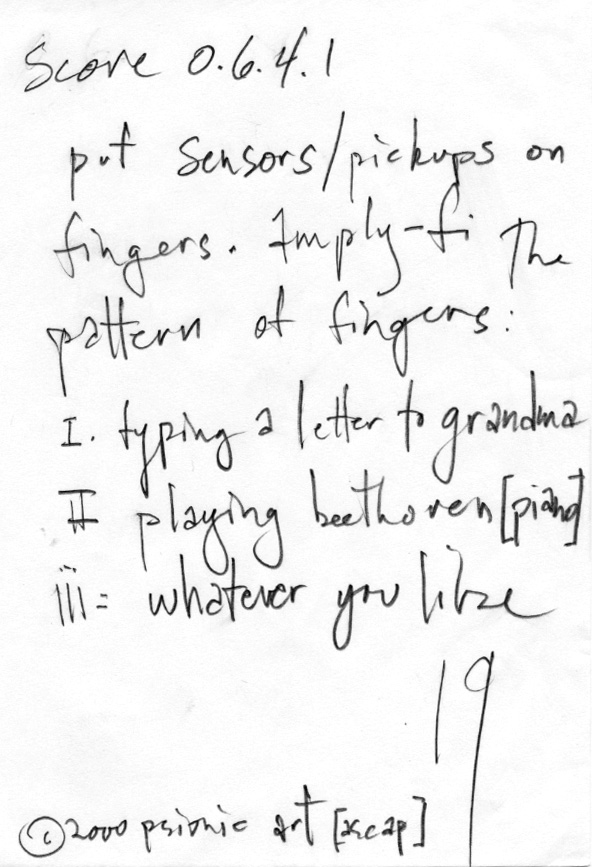 Score 0.6.4.1
put sensors/pickups on
fingers. Imply-fi the
pattern of fingers:
I. typing a letter to grandma
II playing beethoven [piano]
iii= whatever you like
19
© 2000 psionic art [ascap]